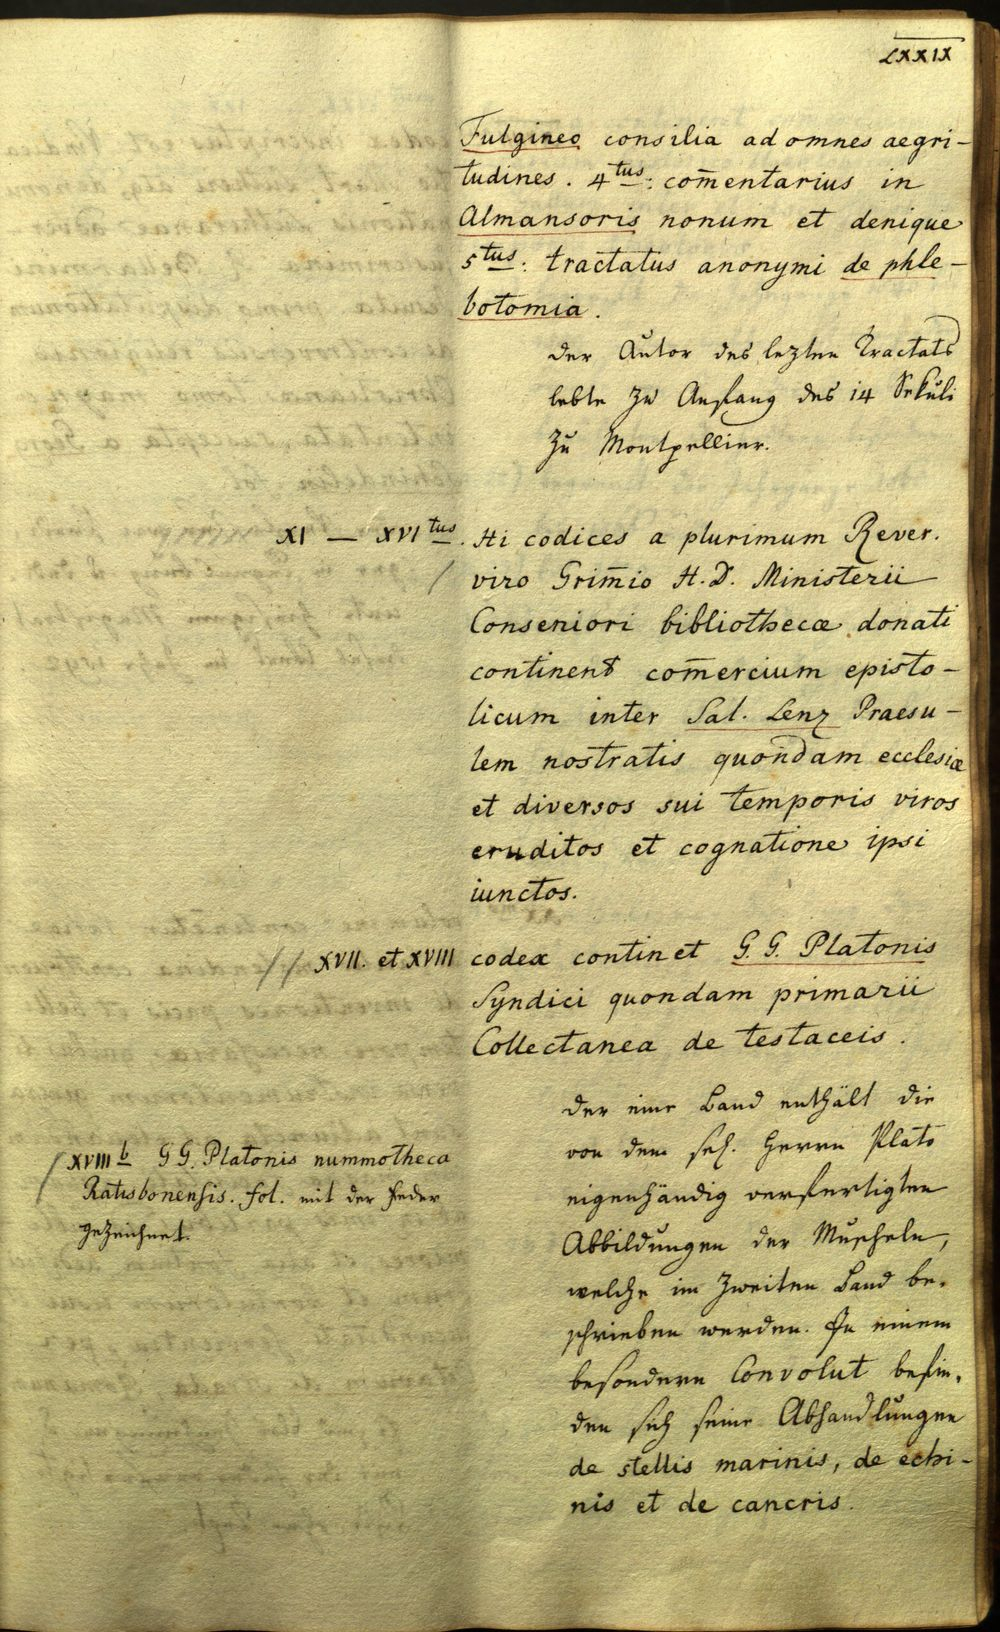 LXXIX
Fulgineo consilia ad omnes aegri-
tudines. 4tus: com̄entarius in
Almansoris nonum et denique
5tus: tractatus anonymi de phle-
botomia.
der Autor des lezten Tractats
lebte zu Anfang des 14 Sekuli
zu Montpellier.
XI — XVItus. Hi codices a plurimum Rever.
viro Grim̄io H. D. Ministerii
Conseniori bibliothecæ donati
continent com̄ercium episto-
licum inter Sal. Lenz Praesu-
lem nostratis quondam ecclesiæ
et diversos sui temporis viros
eruditos et cognatione ipsi
iunctos.
XVII. et XVIII codex continet G. G. Platonis
Syndici quondam primarii
Collectanea de testaceis.
der eine Band enthält die
von dem sel. Herrn Plato
eigenhändig verfertigten
Abbildungen der Muscheln,
welche im zweiten Band be-
schrieben werden. In einem
besondern Convolut befin-
den sich seine Abhandlungen
de stellis marinis, de echi-
nis et de cancris.
XVIII b G G. Platonis nummotheca
Ratisbonensis. fol. mit der Feder
gezeichnet.